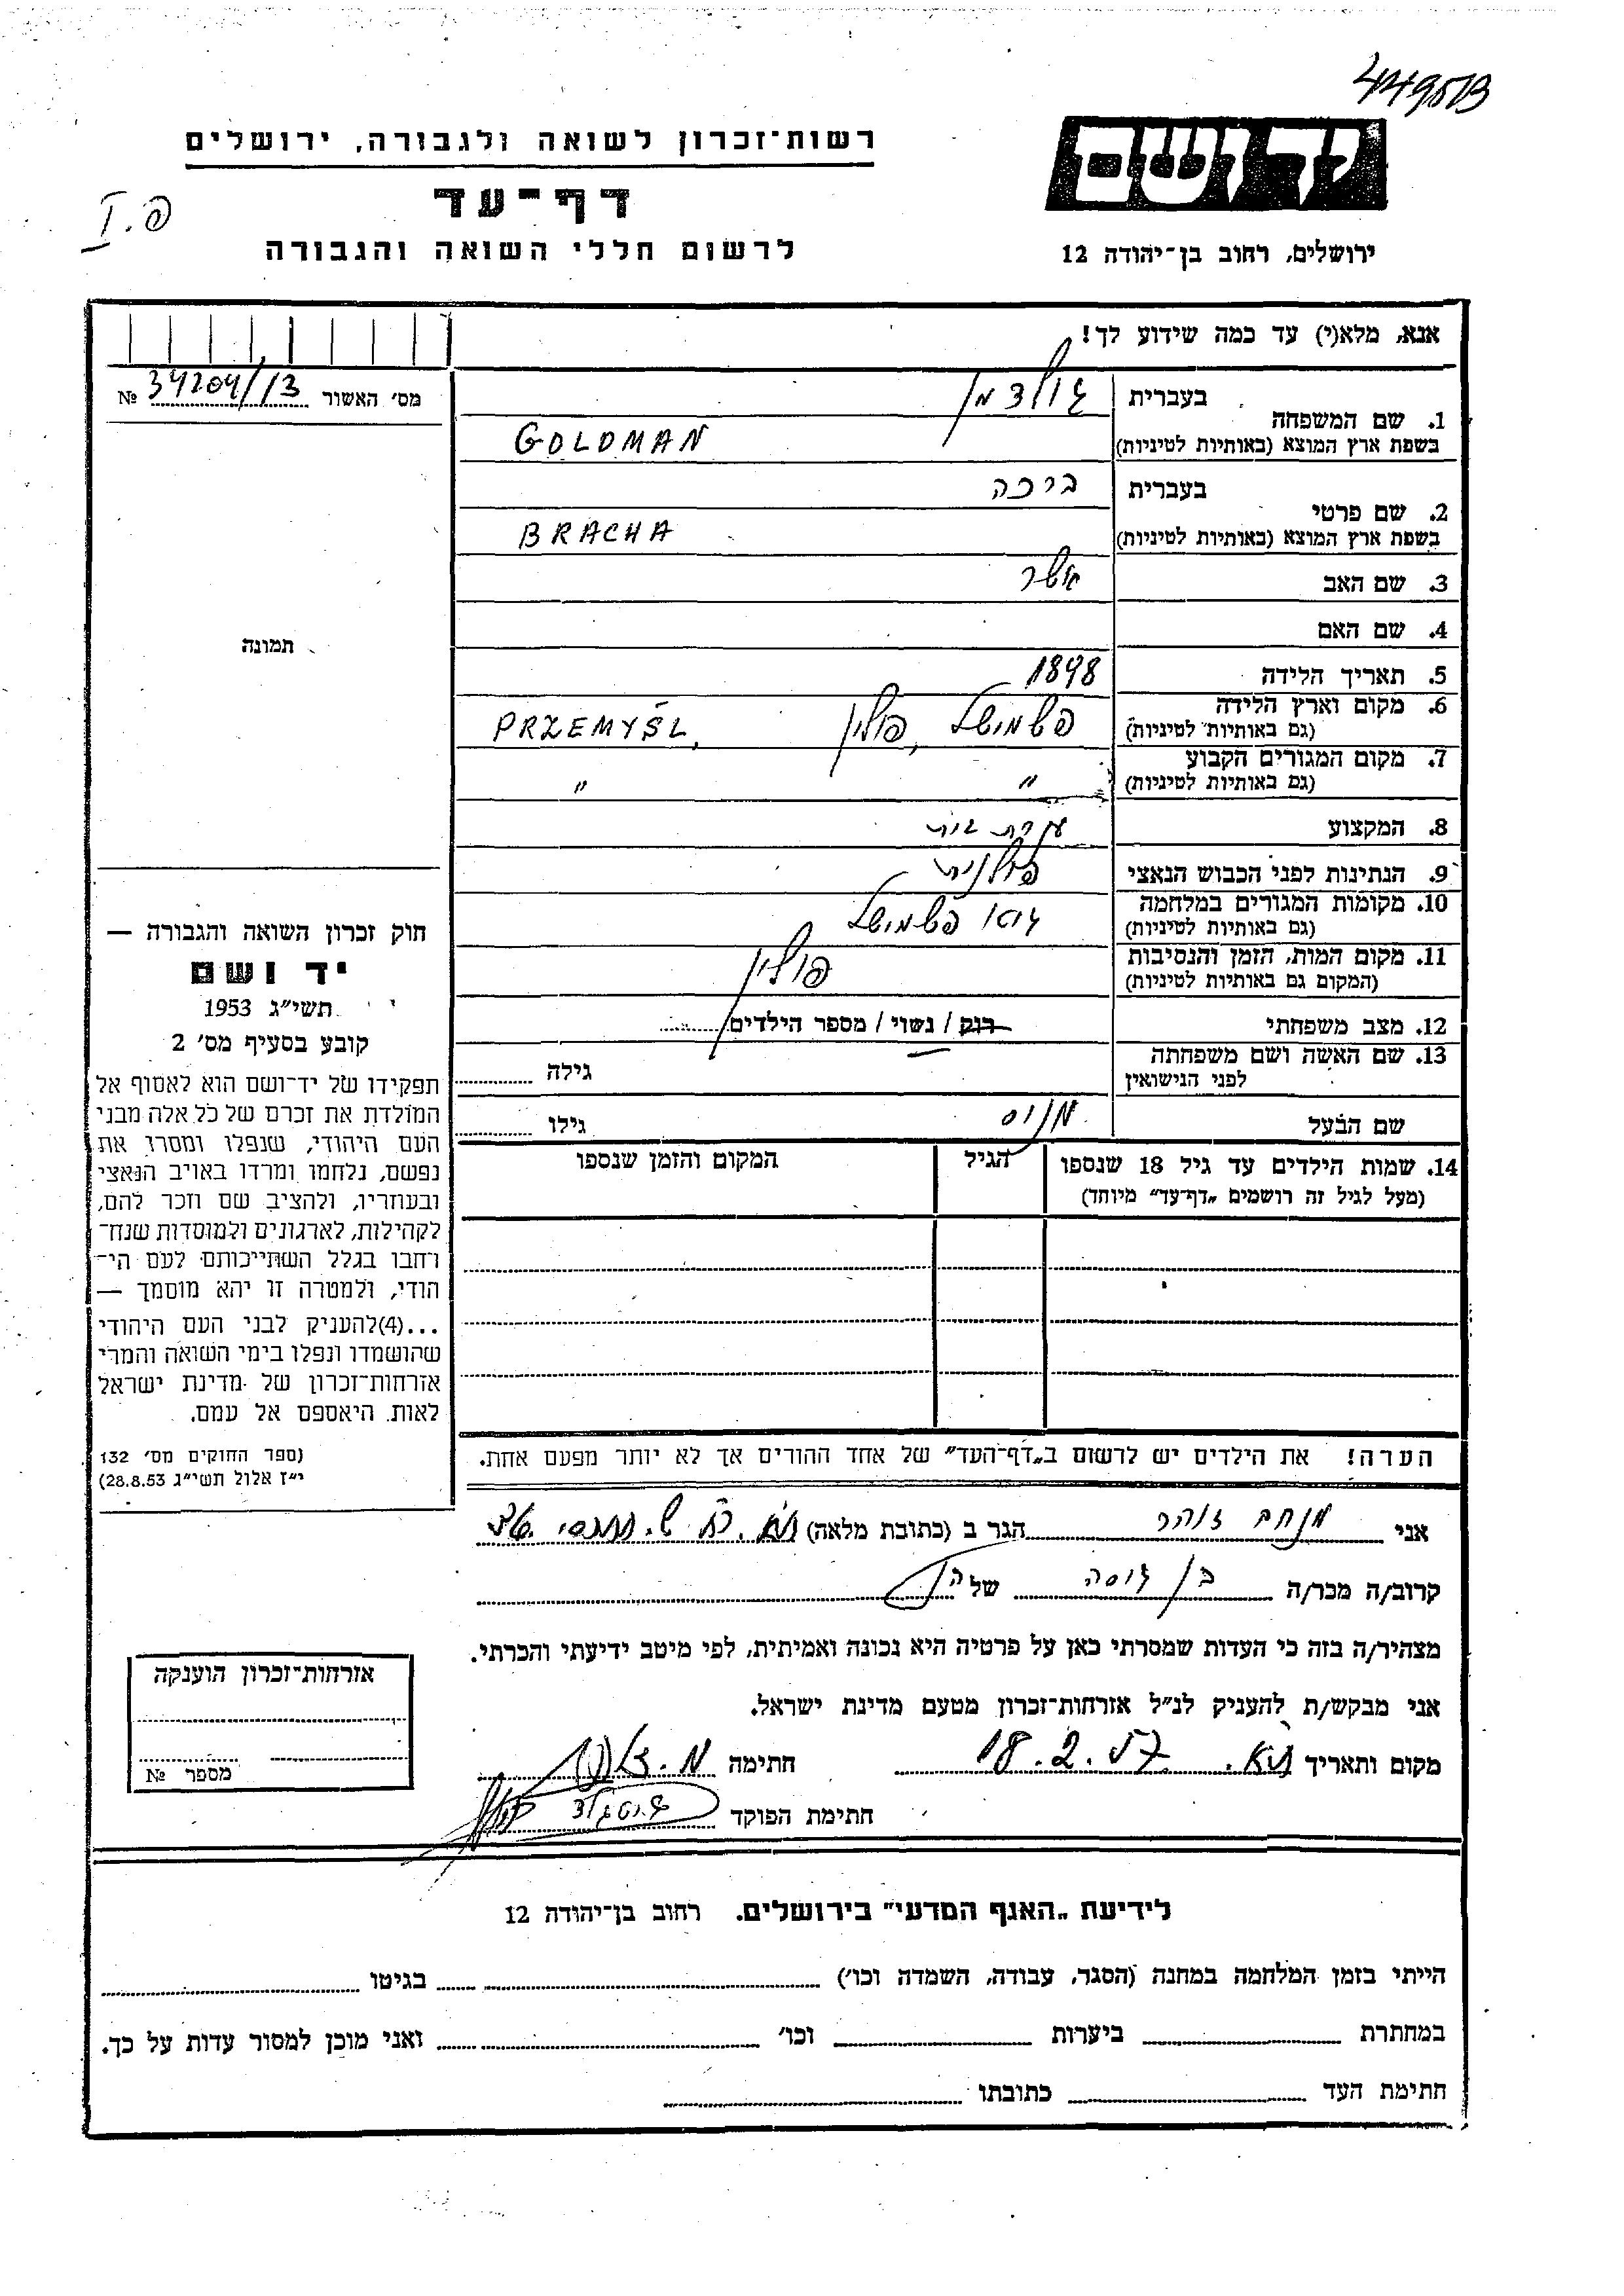 44950B
יד ושם
רשות־זכרון לשואה ולגבורה, ירושלים
דף־עד
I .פ
לרשום חללי השואה והגבורה
ירושלים, רחוב בן־יהודה 12
אנא, מלא(י) עד כמה שידוע לך!
מס׳ האשור 34204/13 №
1. שם המשפחה
בעברית גולדמן
בשפת ארץ המוצא (באותיות לטיניות) GOLDMAN
2. שם פרטי
בעברית ברכה
בשפת ארץ המוצא (באותיות לטיניות) BRACHA
3. שם האב אשר
4. שם האם
תמונה
5. תאריך הלידה 1898
6. מקום וארץ הלידה פשמישל, פולין PRZEMYŚL,
(גם באותיות לטיניות)
7. מקום המגורים הקבוע " "
(גם באותיות לטיניות)
8. המקצוע עקרת בית
9. הנתינות לפני הכבוש הנאצי פולנית
10. מקומות המגורים במלחמה גיטו פשמישל
(גם באותיות לטיניות)
11. מקום המות, הזמן והנסיבות פולין
(המקום גם באותיות לטיניות)
12. מצב משפחתי רווק / נשוי / מספר הילדים
13. שם האשה ושם משפחתה גילה
לפני הנישואין
שם הבעל גילו
14. שמות הילדים עד גיל 18 שנספו הגיל המקום והזמן שנספו
(מעל לגיל זה רושמים „דף־עד״ מיוחד)
חוק זכרון השואה והגבורה —
יד ושם
תשי״ג 1953
קובע בסעיף מס׳ 2
תפקידו של יד־ושם הוא לאסוף אל
המולדת את זכרם של כל אלה מבני
העם היהודי, שנפלו ומסרו את
נפשם, נלחמו ומרדו באויב הנאצי
ובעוזריו, ולהציב שם וזכר להם,
לקהילות, לארגונים ולמוסדות שנח־
רחבו בגלל השתייכותם לעם הי־
הודי, ולמטרה זו יהא מוסמך —
...(4)להעניק לבני העם היהודי
שהושמדו ונפלו בימי השואה והמרי
אזרחות־זכרון של מדינת ישראל
לאות היאספם אל עמם.
(ספר החוקים מס׳ 132
י״ז אלול תשי״ג 28.8.53)
הערה! את הילדים יש לרשום ב„דף־העד״ של אחד ההורים אך לא יותר מפעם אחת.
אני מנחם זוהר הגר ב (כתובת מלאה)
קרוב/ה מכר/ה בן דודה של
מצהיר/ה בזה כי העדות שמסרתי כאן על פרטיה היא נכונה ואמיתית, לפי מיטב ידיעתי והכרתי.
אני מבקש/ת להעניק לנ״ל אזרחות־זכרון מטעם מדינת ישראל.
מקום ותאריך ת״א. 18.2.57 חתימה
חתימת הפוקד
אזרחות־זכרון הוענקה
מספר №
לידיעת „האגף המדעי״ בירושלים. רחוב בן־יהודה 12
הייתי בזמן המלחמה במחנה (הסגר, עבודה, השמדה וכו׳) בגיטו
במחתרת ביערות וכו׳ ואני מוכן למסור עדות על כך.
חתימת העד כתובתו